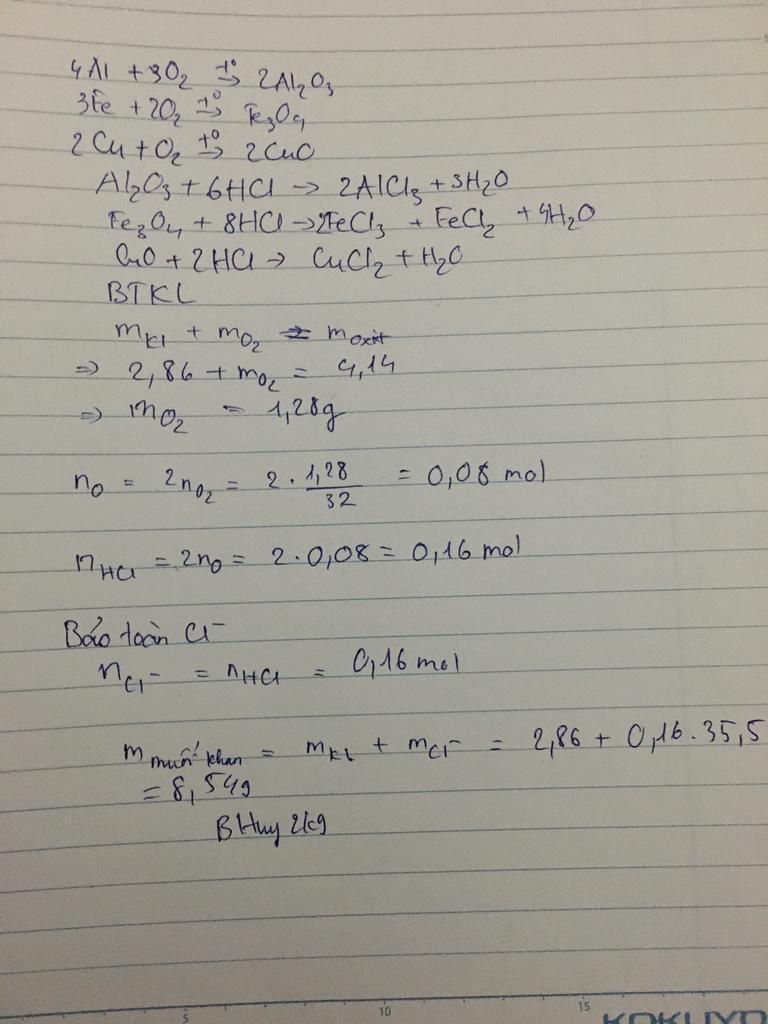 4Al + 3O₂ →t° 2Al₂O₃
3Fe + 2O₂ →t° Fe₃O₄
2Cu + O₂ →t° 2CuO
Al₂O₃ + 6HCl → 2AlCl₃ + 3H₂O
Fe₃O₄ + 8HCl → 2FeCl₃ + FeCl₂ + 4H₂O
CuO + 2HCl → CuCl₂ + H₂O
BTKL
m_Kl + m_O₂ = m_oxit
⇒ 2,86 + m_O₂ = 4,14
⇒ m_O₂ = 1,28g
n_O = 2n_O₂ = 2 · 1,28/32 = 0,08 mol
n_HCl = 2n_O = 2 · 0,08 = 0,16 mol
Bảo toàn Cl⁻
n_Cl⁻ = n_HCl = 0,16 mol
m_muối khan = m_Kl + m_Cl⁻ = 2,86 + 0,16 . 35,5
= 8,54g
BHuy 2kg
5 10 15
KOKUYO